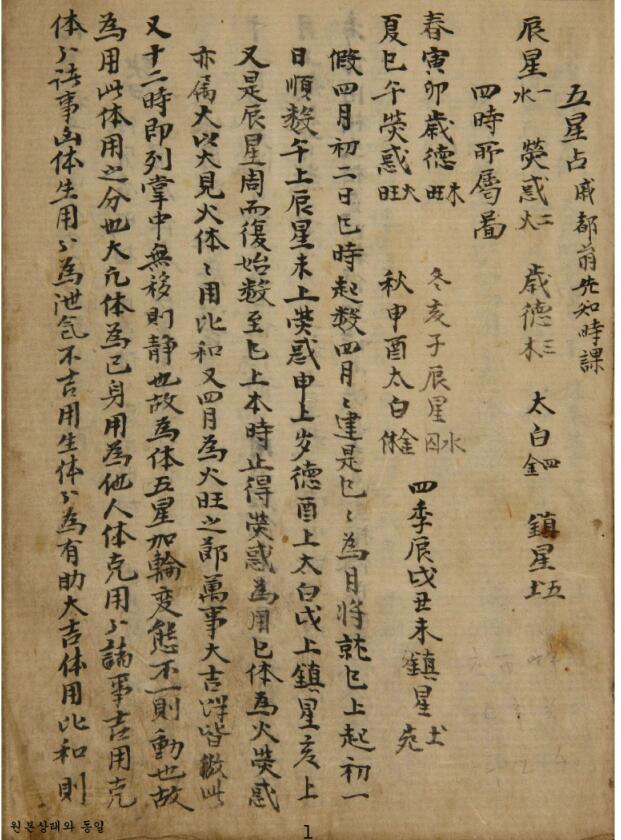 五星占 戚都前先知時課
辰星一水 熒惑二火 歲德三木 太白四金 鎮星五土
四時所屬圖
春寅卯歲德木旺 冬亥子辰星水囚
夏巳午熒惑火旺 秋申酉太白金休 四季辰戌丑未鎮星土
假四月初二日巳時起数四月〻建是巳〻為月將就巳上起初一
日順数午上辰星未上熒惑申上岁德酉上太白戌上鎮星亥上
又是辰星周而復始数至巳上本時止得熒惑為用巳体為火熒惑
亦屬火以火見火体〻用比和又四月為火旺之節萬事大吉餘皆倣此
又十二時即列掌中無移則静也故為体五星加輪変態不一則動也故
為用此体用之分也大凢体為己身用為他人体克用〻諸事吉用克
体〻諸事凶体生用〻為泄気不吉用生体〻為有助大吉体用比和則
원본상태와 동일
1